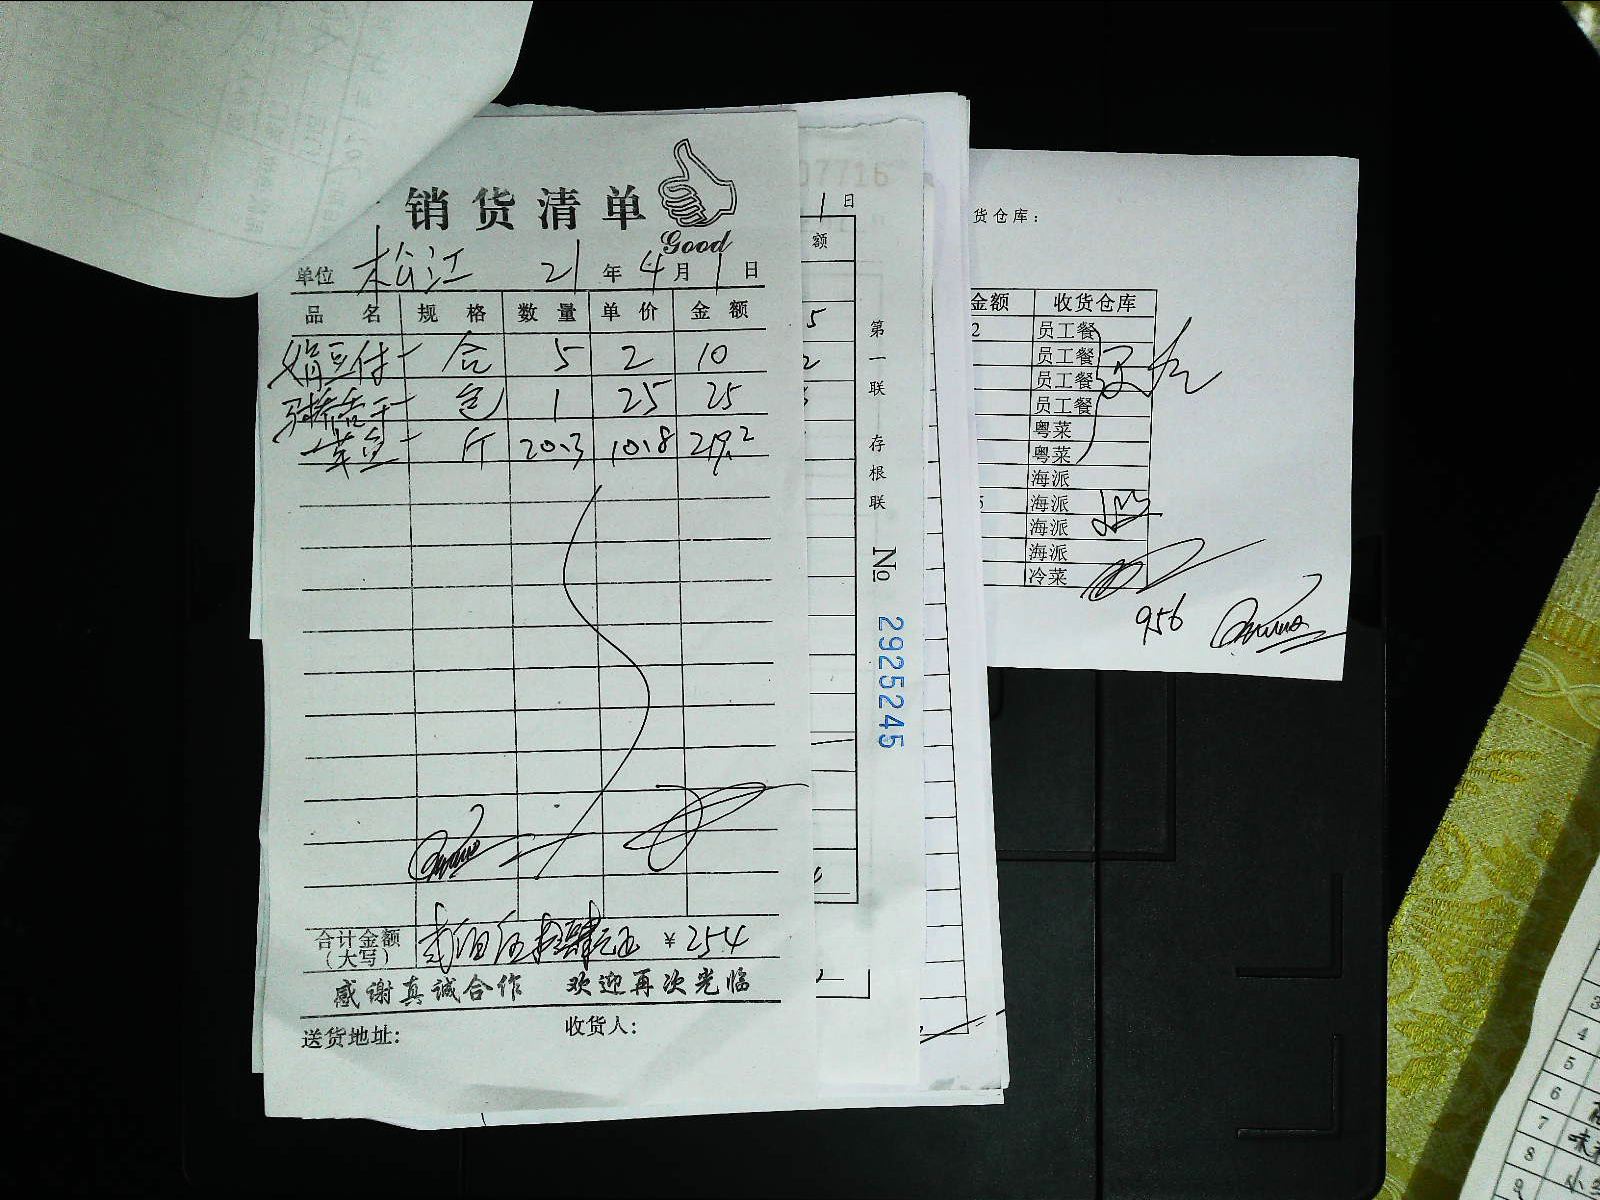 销货清单
Good
单位 松江 21年4月1日
品名 规格 数量 单价 金额
绢豆付 合 5 2 10
包 1 25 25
草鱼 斤 20.3 10.8 219.2
合计金额（大写） 贰佰伍拾肆元正 ￥254
感谢真诚合作 欢迎再次光临
送货地址： 收货人：
07716
1日
额
5
2
第一联 存根联
№ 2925245
货仓库：
金额 收货仓库
2 员工餐
员工餐
员工餐
员工餐
粤菜
粤菜
海派
5 海派
海派
海派
冷菜
956
3
4
5
6
7 味
8 小
9